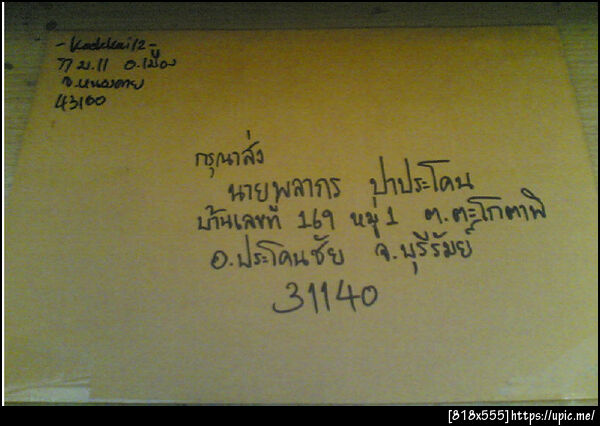 -Kaekkai12-
77 ม.11 อ.เมือง
จ.หนองคาย
43100
กรุณาส่ง
นายพลากร ปาประโคน
บ้านเลขที่ 169 หมู่ 1 ต.ตะโกตาพิ
อ.ประโคนชัย จ.บุรีรัมย์
31140
[818x555]https://upic.me/